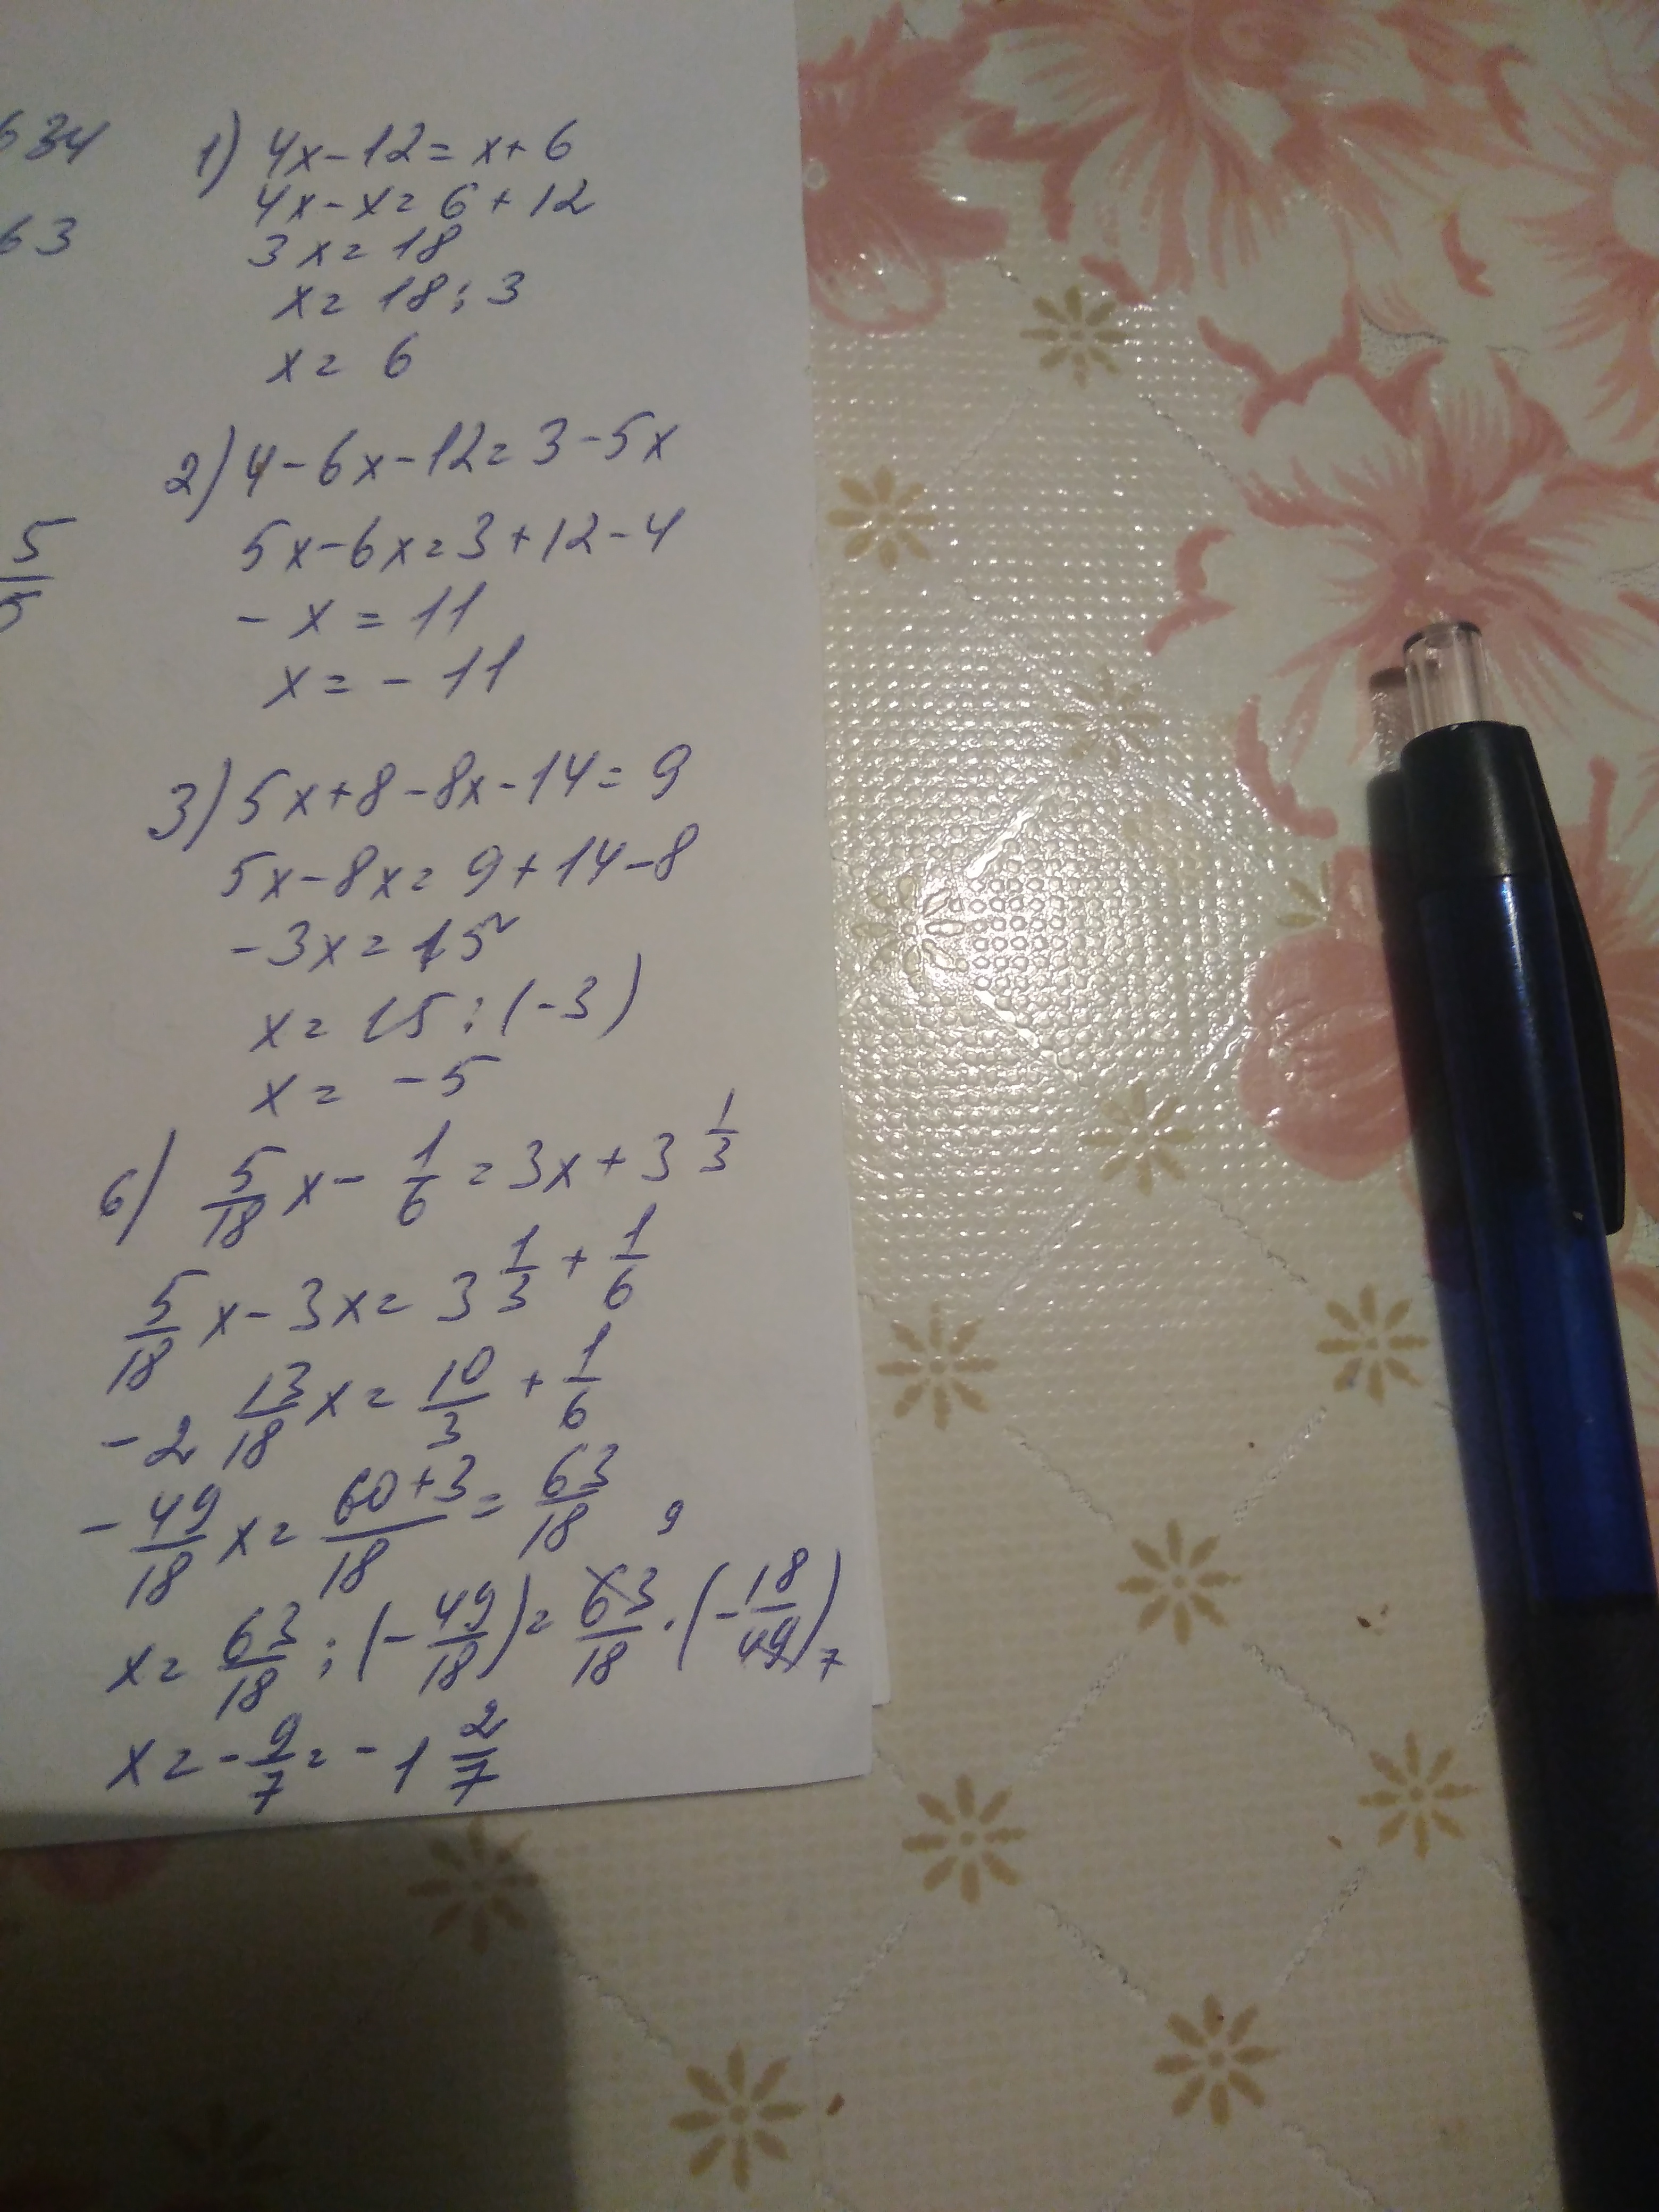 634
63
5/5
1) 4x-12=x+6
4x-x=6+12
3x=18
x=18:3
x=6
2) 4-6x-12=3-5x
5x-6x=3+12-4
-x=11
x=-11
3) 5x+8-8x-14=9
5x-8x=9+14-8
-3x=15
x=15:(-3)
x=-5
6) 5/18 x - 1/6 = 3x + 3 1/3
5/18 x - 3x = 3 1/3 + 1/6
-2 13/18 x = 10/3 + 1/6
-49/18 x = 60+3/18 = 63/18
x = 63/18 : (-49/18) = 63/18 · (-18/49) 9 7
x = -9/7 = -1 2/7